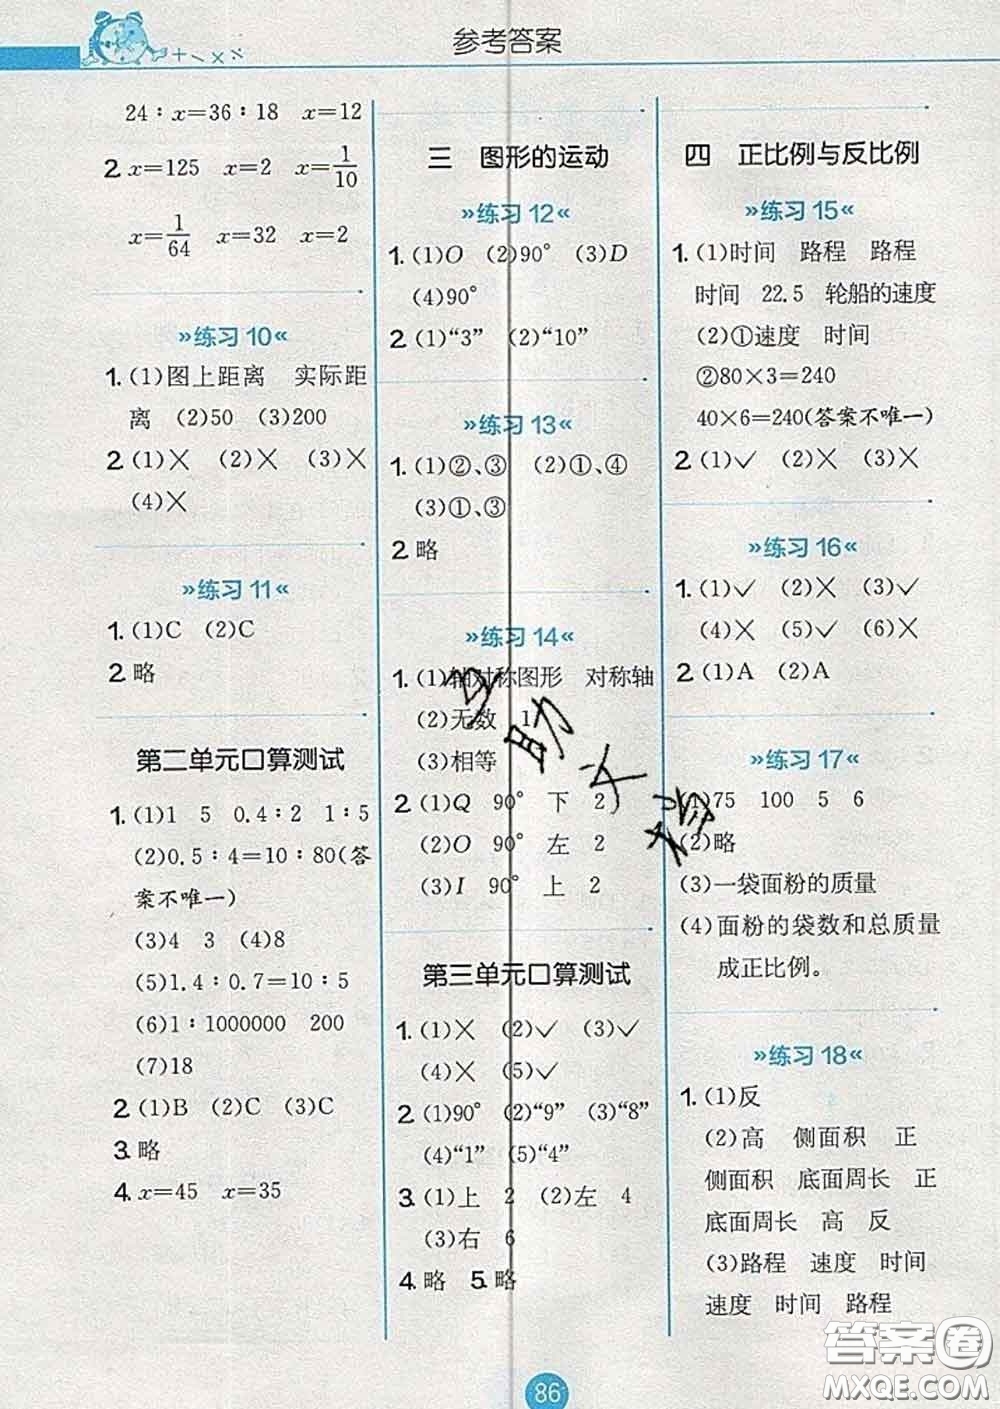 参考答案
24∶x=36∶18 x=12
2. x=125 x=2 x=1/10
x=1/64 x=32 x=2
»练习10«
1. (1)图上距离 实际距
离 (2)50 (3)200
2. (1)× (2)× (3)×
(4)×
»练习11«
1. (1)C (2)C
2. 略
第二单元口算测试
1. (1)1 5 0.4∶2 1∶5
(2)0.5∶4=10∶80(答
案不唯一)
(3)4 3 (4)8
(5)1.4∶0.7=10∶5
(6)1∶1000000 200
(7)18
2. (1)B (2)C (3)C
3. 略
4. x=45 x=35
三 图形的运动
»练习12«
1. (1)O (2)90° (3)D
(4)90°
2. (1)“3” (2)“10”
»练习13«
1. (1)②、③ (2)①、④
(3)①、③
2. 略
»练习14«
1. (1)轴对称图形 对称轴
(2)无数 1
(3)相等
2. (1)Q 90° 下 2
(2)O 90° 左 2
(3)I 90° 上 2
第三单元口算测试
1. (1)× (2)✓ (3)✓
(4)× (5)✓
2. (1)90° (2)“9” (3)“8”
(4)“1” (5)“4”
3. (1)上 2 (2)左 4
(3)右 6
4. 略 5. 略
四 正比例与反比例
»练习15«
1. (1)时间 路程 路程
时间 22.5 轮船的速度
(2)①速度 时间
②80×3=240
40×6=240(答案不唯一)
2. (1)✓ (2)× (3)×
»练习16«
1. (1)✓ (2)× (3)✓
(4)× (5)✓ (6)×
2. (1)A (2)A
»练习17«
(1)75 100 5 6
(2)略
(3)一袋面粉的质量
(4)面粉的袋数和总质量
成正比例。
»练习18«
1. (1)反
(2)高 侧面积 正
侧面积 底面周长 正
底面周长 高 反
(3)路程 速度 时间
速度 时间 路程
86
答案圈
MXQE.COM